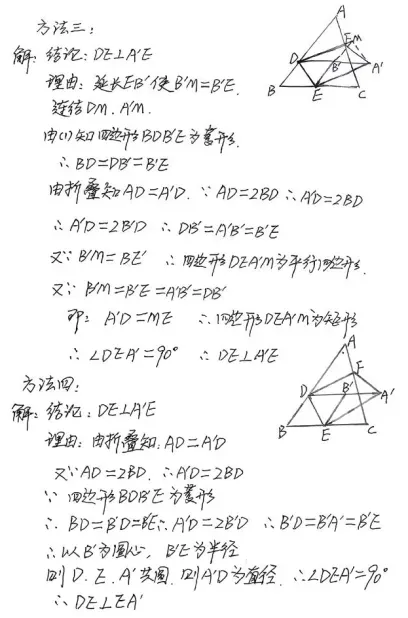 方法三:
解: 结论: DE⊥A'E
理由: 延长EB'使B'M=B'E.
连结DM. A'M.
由(1)知四边形BDB'E为菱形.
∴ BD=DB'=B'E
由折叠知AD=A'D. ∵ AD=2BD ∴ A'D=2BD
∴ A'D=2B'D ∴ DB'=A'B'=B'E
又∵ B'M=BE' ∴ 四边形DEA'M为平行四边形.
又∵ B'M=B'E=A'B'=DB'
即: A'D=ME ∴ 四边形DEA'M为矩形
∴ ∠DEA'=90° ∴ DE⊥A'E
A
F M
D B' A'
B E C
方法四:
解: 结论: DE⊥A'E
理由: 由折叠知, AD=A'D
又∵AD=2BD. ∴A'D=2BD
∵ 四边形BDB'E为菱形
∴ BD=B'D=B'E ∴ A'D=2B'D ∴ B'D=B'A'=B'E
∴以B'为圆心, B'E为半径
则 D. E. A'共圆. 则A'D为直径. ∴∠DEA'=90°
∴ DE⊥EA'
A
F
D B' A'
B E C